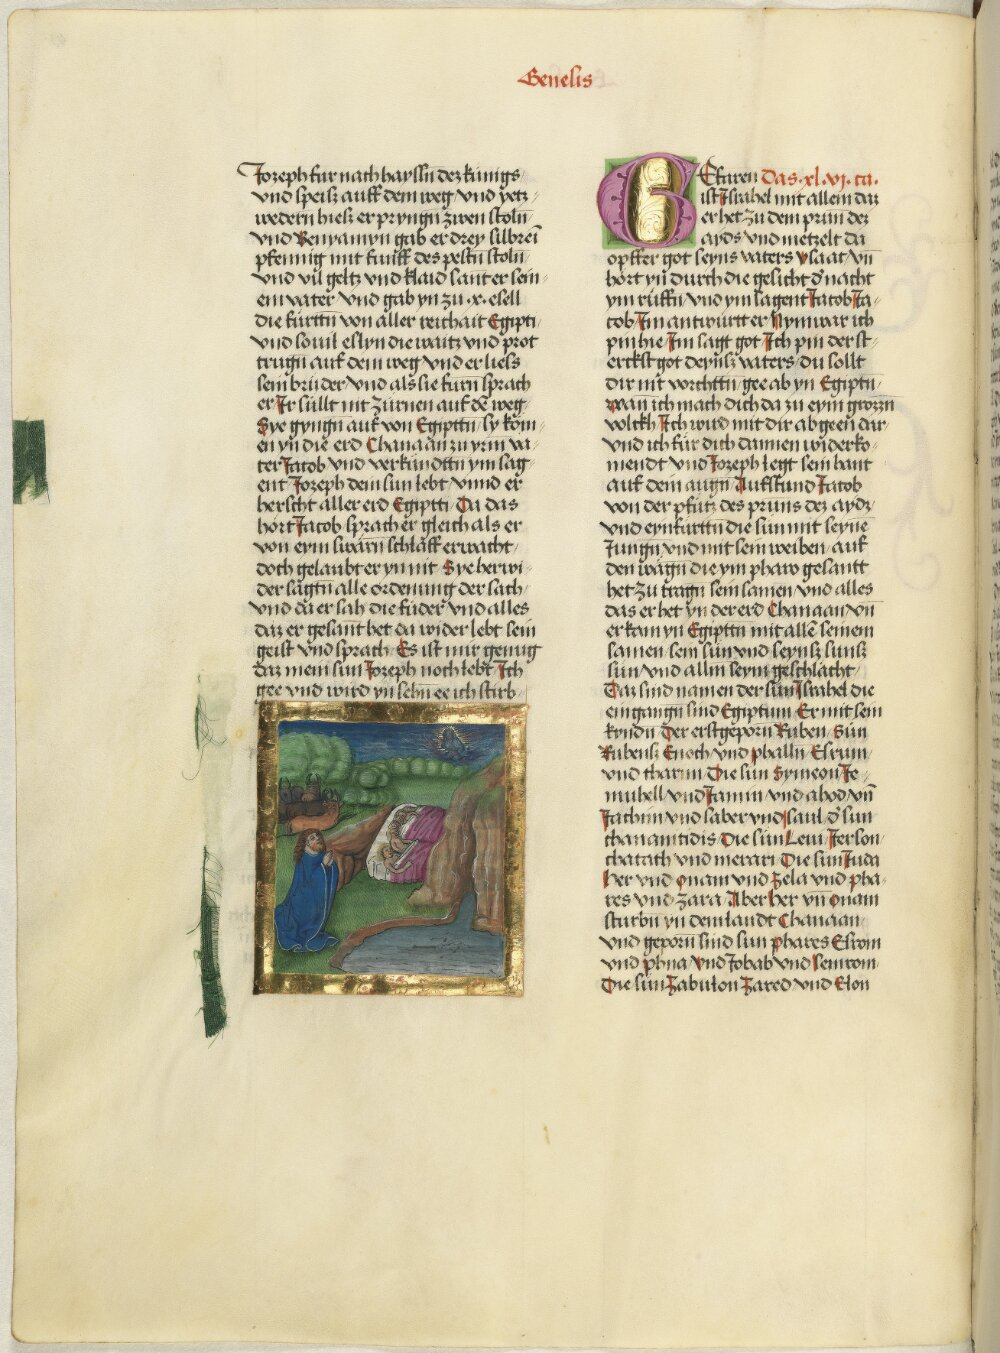 Genesis
Jozeph fur nach hayssn dez künigs
vnd speisz auff dem weg vnd yetz
wedern hiesz er pryngn zwen stoln
vnd Benyamyn gab er drey silbreī
pfennig mit fünff des pestn stoln
vnd vil geltz vnd klaid sant er sein
em vater vnd gab yn zu .x. esell
die fürttn von aller reichait Egipti
vnd souil eslyn die waitz vnd prot
trugn auf dem weg vnd er liess
sein brüder vnd als sie furn sprach
er Jr süllt nit zürnen auf dē weg
Sye gyngn auf von Egipttn sy kom
en yn die erd Chanaan zu yrm va
ter Jacob vnd verkündttn ym sag
ent Jozeph dein sun lebt vnnd er
herscht aller erd Egiptti Da das
hört Jacob sprach er gleich als er
von eym swärn schlaff erwacht
doch gelaubt er yn nit Sye herwi
der sagtn alle ordenung der sach
vnd da er sah die füder vnd alles
daz er gesant het da wider lebt sein
geist vnd sprach Es ist mir genug
daz mein sun Jozeph noch lebt Ich
gee vnd wird yn sehn ee ich stirb
GEfaren Das .xl.vj. ca.
ist Israhel mit allem daz
er het zu dem prun der
ayds vnd metzelt da
opffer got seyns vaters ysaac vn̄
hört yn durch die gesicht d' nacht
ym rüffn vnd ym sagent Jacob Ja
cob Im antwürtt er Nym war ich
pin hie Im sagt got Ich pin der st
erckst got deynsz vaters du sollt
dir nit vorchttn gee ab yn Egiptn
wan ich mach dich da zu eym grozzn
volckh Ich wird mit dir ab geen dar
vnd ich für dich dannen widerko
mendt vnd Jozeph legt sein hant
auf dein augn Aufstund Jacob
von der pfütz des pruns dez aydz
vnd eynfürttn die sün mit seyne
Jungn vnd mit sein weiben auf
den wägn die ym pharo gesantt
het zu tragn sein samen vnd alles
das er het yn der erd Chanaan vn̄
er kam yn Egipttn mit allē seinem
samen sein sün vnd seynsz sunsz
sün vnd allm seym geschlächt
Daz sind namen der sün Israhel die
eingangn sind Egiptum Er mit sein
kyndn Der erstgeporn Ruben Sün
Rubensz Enoch vnd phallu Esrum
vnd charmi Die sün Symeon Je
muhell vnd Jamin vnd ahod vn̄
Jachim vnd saher vnd saul d' sun
chananitidis Die sün Leui Jerson
chatath vnd merari Die sün Juda
her vnd onam vnd Sela vnd pha
res vnd Zara Aber her vn̄ onam
sturbn yn dem landt Chanaan
vnd geporn sind sun phares Esrom
vnd phua vnd Jobab vnd semrom
Die sün Zabulon Zared vnd Elon